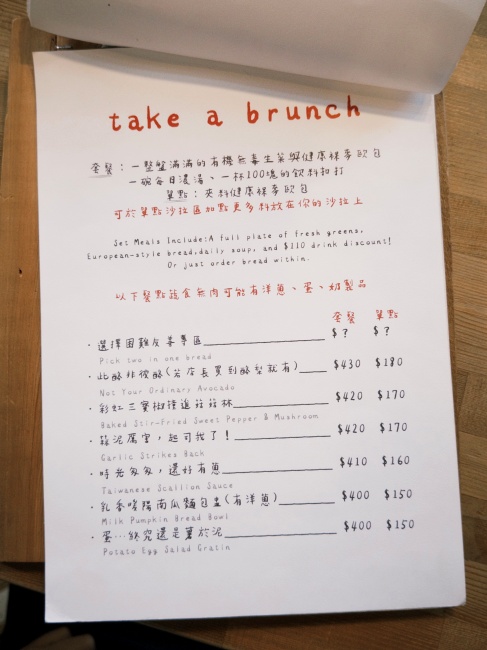 take a brunch
套餐：一整盤滿滿的有機無毒生菜與健康裸麥歐包
一碗每日濃湯、一杯100塊的飲料扣打
單點：夾料健康裸麥歐包
可於單點沙拉區加點更多料放在你的沙拉上
Set Meals Include:A full plate of fresh greens,
European-style bread,daily soup, and $110 drink discount!
Or just order bread within.
以下餐點蔬食無肉可能有洋蔥、蛋、奶製品
套餐 單點
·選擇困難友善專區 $? $?
Pick two in one bread
·此酪非彼酪(若店長買到酪梨就有) $430 $180
Not Your Ordinary Avocado
·彩虹三寶椒鋒進菇菇杯 $420 $170
Baked Stir-Fried Sweet Pepper & Mushroom
·蒜泥厲害，起司我了！ $420 $170
Garlic Strikes Back
·時光匆匆，還好有蔥 $410 $160
Taiwanese Scallion Sauce
·乳香嘜隔南瓜麵包盅(有洋蔥) $400 $150
Milk Pumpkin Bread Bowl
·蛋…終究還是薯於泥 $400 $150
Potato Egg Salad Gratin